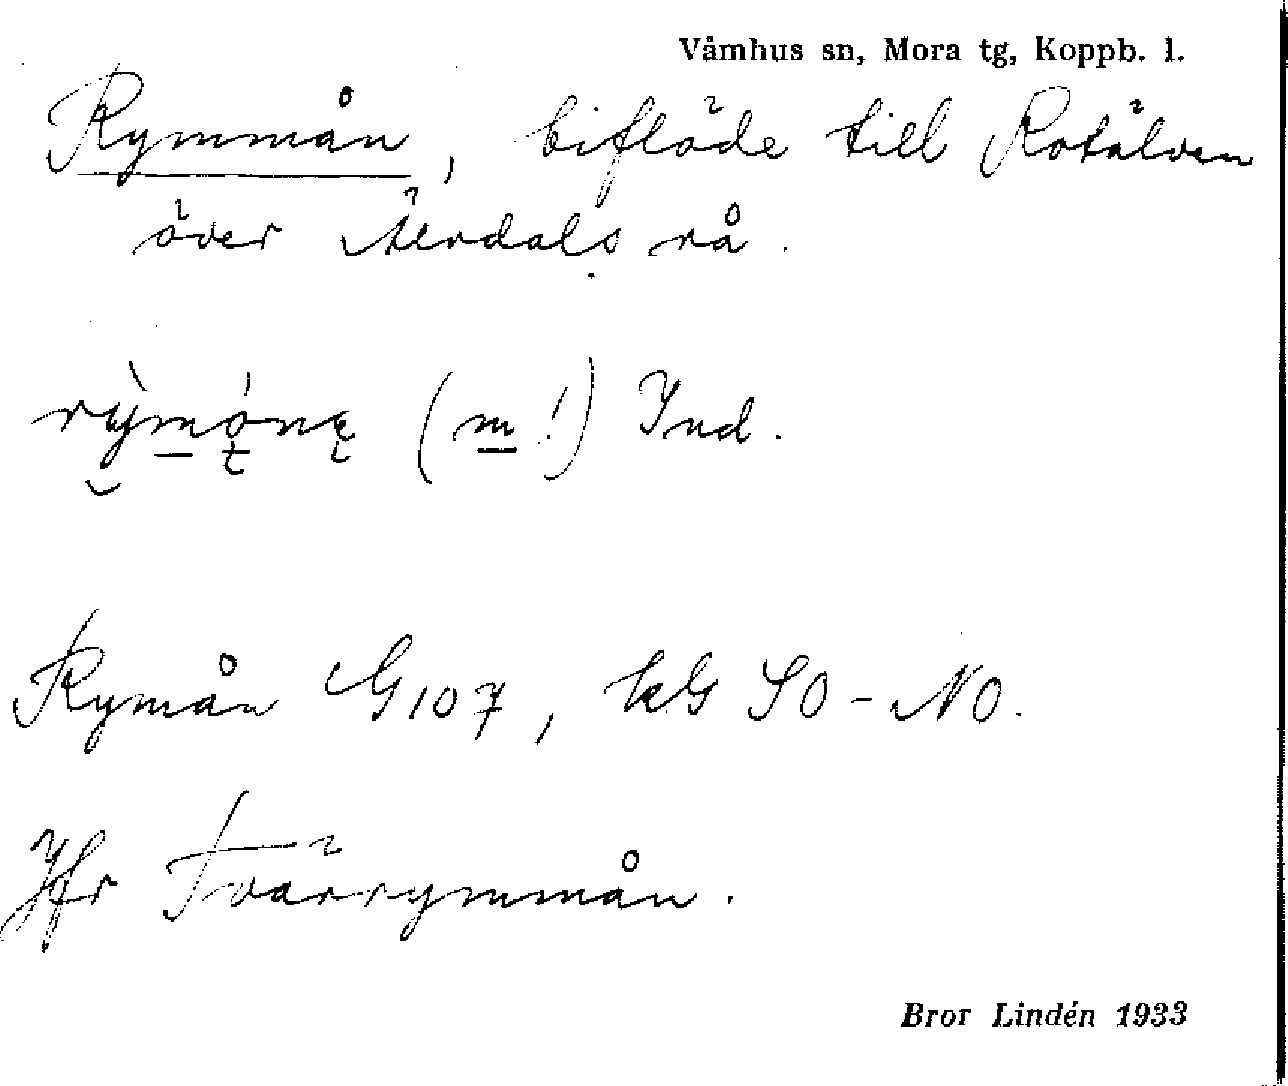 Våmhus sn, Mora tg, Koppb. l.
Rymmån, biflöde till Rotälven
över Älvdals rå.
(m!) Ind.
Rymån G107, kG SO-NO.
Jfr Tvärrymmån.
Bror Lindén 1933